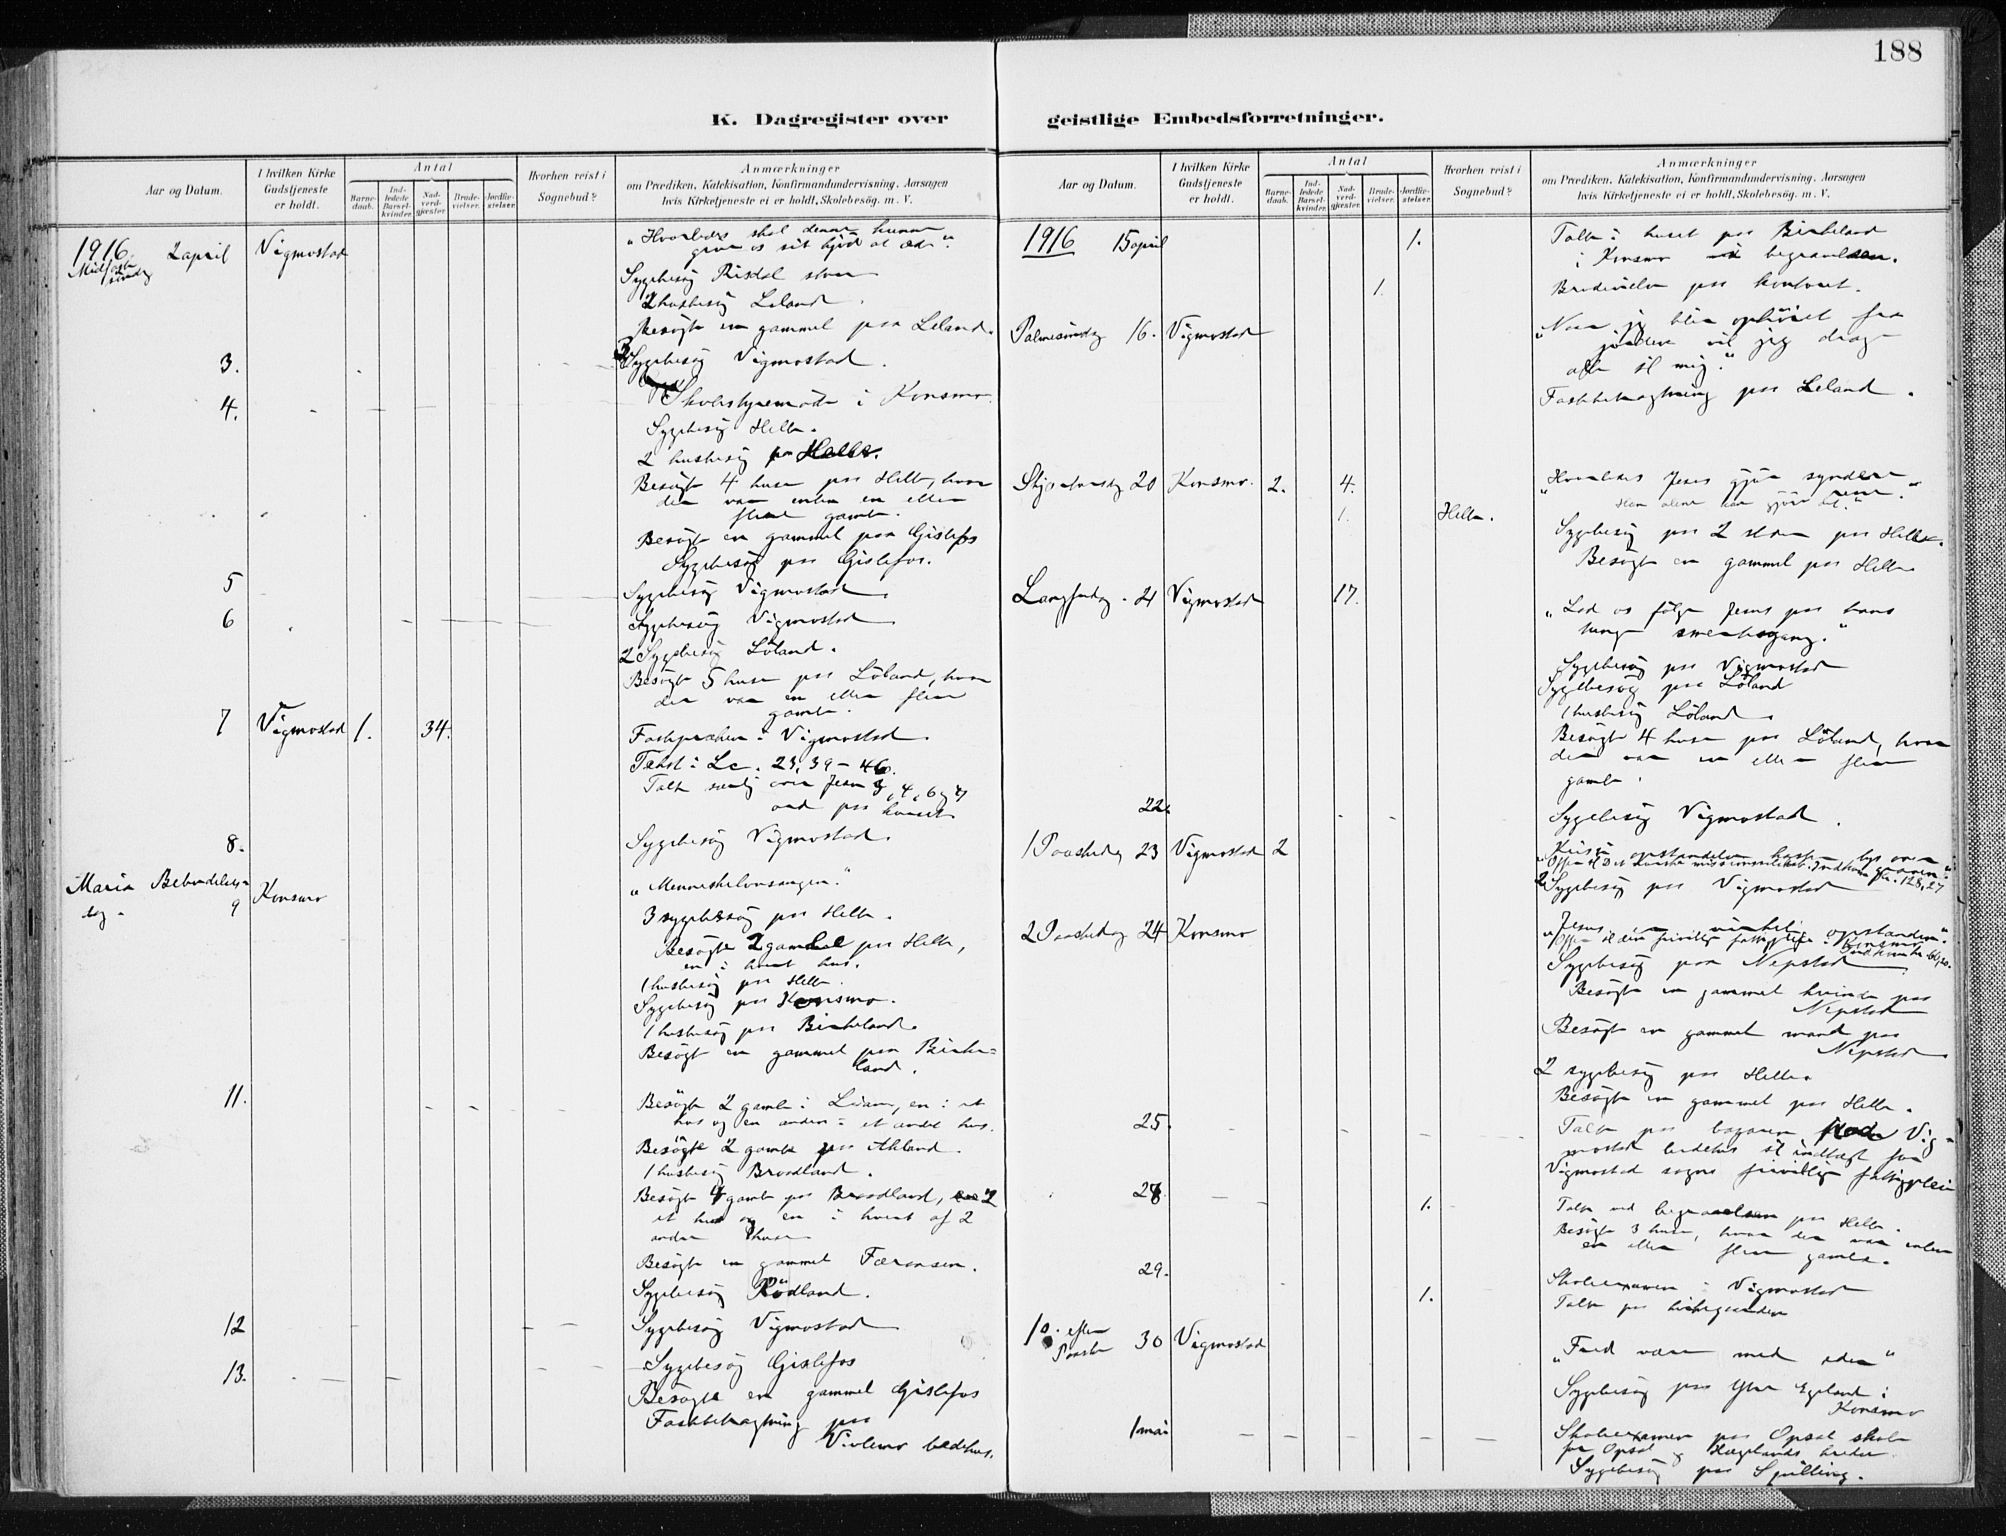 188
K. Dagregister over geistlige Embedsforretninger.
Aar og Datum.
I hvilken Kirke Gudstjeneste er holdt.
Antal
Barnedaab.
Indledede Barselkvinder.
Nadverdgjester.
Brudevielser.
Jordfæstelser.
Hvorhen reist i Sognebud?
Anmærkninger
om Prædiken, Katekisation, Konfirmandundervisning, Aarsagen
hvis Kirketjeneste ei er holdt, Skolebesög. m. V.
1916. 2 april Vigmostad
Midfaste søndag
"Hvorledes skal denne kunne
give os sit kjöd at æde."
Sygebesög Risdal
2 husbesög Leland
Besögte en gammel paa Leland.
3. Sygebesög Vigmostad.
4. Skolestyremöde i Konsmo.
Sygebesög Helle.
2 husbesög paa Helle.
Besögte 4 huse paa Helle, hvor
der var enten en eller
flere gamle.
Besögte en gammel paa Gislefos
Sygebesög paa Gislefos.
5 Sygebesög Vigmostad
6 Sygebesög Vigmostad
2 Sygebesög Löland.
Besögte 5 huse paa Löland, hvor
der var en eller flere
gamle.
7 Vigmostad 1. 34.
Fastepræken i Vigmostad.
Tekst: Lc. 23, 39-46.
8. Sygebesög Vigmostad.
Maria Bebudelses-
dag. 9 Konsmo
3 sygebesög paa Helle.
Besögte 2 gamle paa Helle,
en i hvert hus.
1 husbesög paa Helle.
Sygebesög paa Konsmo.
1 husbesög paa Birkeland.
Besögte en gammel paa Birke-
land.
11. Besögte 2 gamle i en i et
hus og en anden i et andet hus.
Besögte 2 gamle paa
1 husbesög Brödland.
Besögte 4 gamle paa Brödland, 2
et hus og en i hvert af 2
andre huse
Besögte en gammel
Sygebesög Rödland.
12 Sygebesög Vigmostad
13. Sygebesög Gislefos
Besögte en gammel Gislefos
Fastebetragtning paa
bedehus.
Aar og Datum.
I hvilken Kirke Gudstjeneste er holdt.
Antal
Barnedaab.
Indledede Barselkvinder.
Nadverdgjester.
Brudevielser.
Jordfæstelser.
Hvorhen reist i Sognebud?
Anmærkninger
om Prædiken, Katekisation, Konfirmandundervisning, Aarsagen
hvis Kirketjeneste ei er holdt, Skolebesög. m. V.
1916 15 april 1.
Tale i huset paa Birkeland
i Konsmo ved begravelsen.
1. Brudevielse paa kontoret.
Palmesöndag 16. Vigmostad
"Naar jeg blir ophöiet fra
jorden vil jeg drage
alle til mig."
Fastebetragtning paa Leland.
Skjærtorsdag 20 Konsmo. 2. 4.
"Hvorledes Jesus gjör syndere
rene."
1. Helle.
Sygebesög paa 2 steder paa Helle.
Besögte en gammel paa Helle
Langfredag. 21 Vigmostad 17.
"Lad os fölge Jesus paa hans
tunge smertesgang."
Sygebesög paa Vigmostad
Sygebesög paa Löland
1 husbesög Löland.
Besögte 4 huse paa Löland, hvor
der var en eller flere
gamle.
22. Sygebesög Vigmostad.
1 Paaskedag 23 Vigmostad 2
2 Sygebesög paa Vigmostad
2 Paaskedag 24 Konsmo
"Jesus er virkelig opstanden."
Sygebesög paa Nepstad
Besögte en gammel kvinde paa
Nepstad
Besögte en gammel mand paa
Nepstad
2 sygebesög paa Helle.
Besögte en gammel paa Helle.
25. Tale paa basaren Vig-
mostad bedehus til indtægt for
Vigmostad sogns frivillige fattigpleie
28. 1.
Tale ved begravelsen paa Helle.
Besögte 3 huse, hvor der var enten
en eller flere gamle.
29. Skoleexamen i Vigmostad
1.
1 s. efter
Paaske 30 Vigmostad
"Fred være med eder"
Sygebesög paa Ytre Egeland i
Konsmo
1 mai Skoleexamen paa Opsal skole
for Opsal og Hægelands kredse.
Sygebesög paa Spilling.